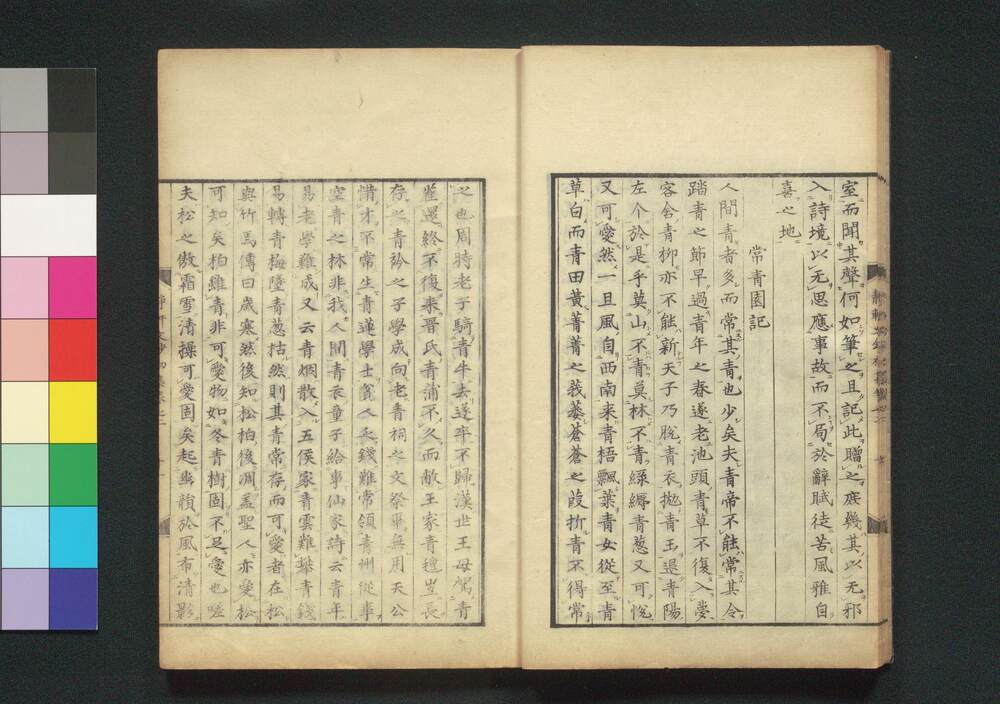 室而聞其聲何如筆之且記此贈之庶幾其以无邪
入詩境以无思應事故而不局於辭賦徒苦風雅自
喜之地
常青園記
人間青者多而常其青也少矣夫青帝不能常其令
踏青之節早過青年之春遂老池頭青草不復入夢
客舍青柳亦不能新天子乃脫青衣拋青玉退青陽
左个於是乎莫山不青莫林不青綠縟青葱又可悅
又可愛然一旦風自西南来青梧飄葉青女從至青
草白而青田黃菁菁之莪萎蒼蒼之葭折青不得常
之也周時老子騎青牛去遂卒不歸漢世王母駕青
雀還終不復来晋氏青蒲不久而敵王家青氊豈長
存之青衿之子學成向老青祠之文祭畢無用天公
惜才不常生青蓮學士貧人乏錢難常領青州從事
空青之林非我人間青衣童子給事仙家詩云青年
易老學難成又云青烟散入五侯家青雲難攀青錢
易轉青梅墜青葱枯然則其青常存而可愛者在松
與竹焉傳曰歲寒然後知松柏後凋盖聖人亦愛松
可知矣柏雖青非可愛物如冬青樹固不足愛也嗟
夫松之傲霜雪清操可愛固矣起幽韻於風布清影